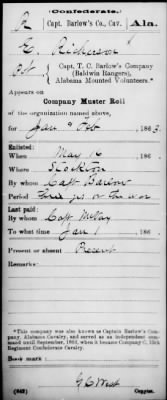 (Confederate.)
R Capt. Barlow's Co., Cav. Ala.
E. Richerson
Pvt, Capt. T. C. Barlow's Company
(Baldwin Rangers),
Alabama Mounted Volunteers.*
Appears on
Company Muster Roll
of the organization named above,
for Jan & Feb, 1863.
Enlisted:
When May 16, 186
Where Stockton
By whom Capt Barlow
Period three yrs or the war
Last paid:
By whom Capt McVay
To what time Jan 1, 186
Present or absent Present
Remarks:
*This company was also known as Captain Barlow's Company, Alabama Cavalry, and served as an independent command until September, 1863, when it became Company C, 15th Regiment Confederate Cavalry.
Book mark:
G C West
(642) Copyist.